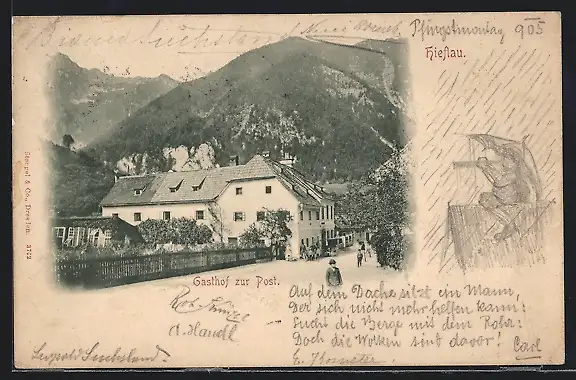 Pfingstmontag 905
Hieflau.
Stengel & Co., Dresden. 2172
Gasthof zur Post.
Auf dem Dache sitzt ein Mann,
Der sich nicht mehr helfen kann:
Sucht die Berge mit dem Rohr:
Doch die Wolken sind davor!
Carl
A. Handl
Leopold